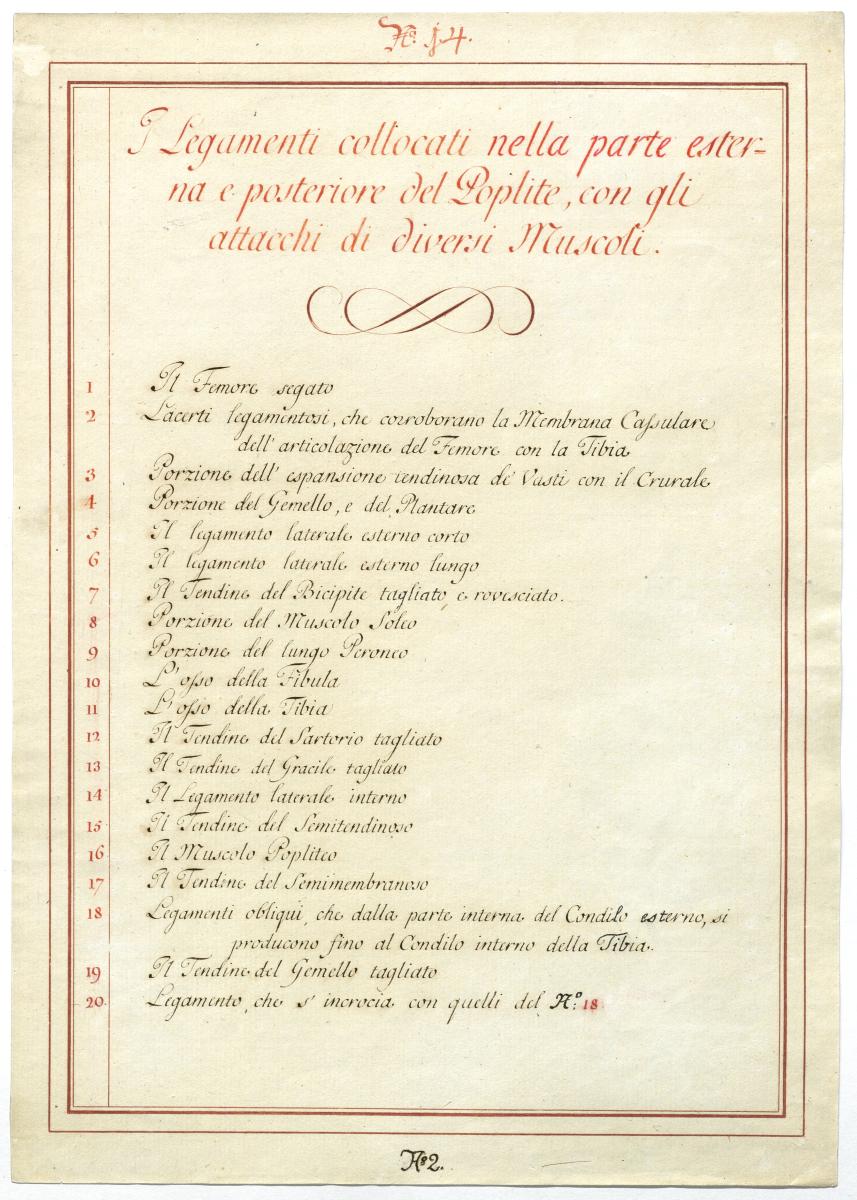 N.º 14.
I Legamenti collocati nella parte ester-
na e posteriore del Poplite, con gli
attacchi di diversi Muscoli.
1 Il Femore segato
2 Lacerti legamentosi, che corroborano la Membrana Cassulare
dell' articolazione del Femore con la Tibia
3 Porzione dell' espansione tendinosa de' Vasti con il Crurale
4 Porzione del Gemello, e del Plantare
5 Il legamento laterale esterno corto
6 Il legamento laterale esterno lungo
7 Il Tendine del Bicipite tagliato, e rovesciato.
8 Porzione del Muscolo Soleo
9 Porzione del lungo Peroneo
10 L' osso della Fibula
11 L' osso della Tibia
12 Il Tendine del Sartorio tagliato
13 Il Tendine del Gracile tagliato
14 Il Legamento laterale interno
15 Il Tendine del Semitendinoso
16 Il Muscolo Popliteo
17 Il Tendine del Semimembranoso
18 Legamenti obliqui, che dalla parte interna del Condilo esterno, si
producono fino al Condilo interno della Tibia.
19 Il Tendine del Gemello tagliato
20 Legamento, che s' incrocia con quelli del N.º 18
N.º 2.